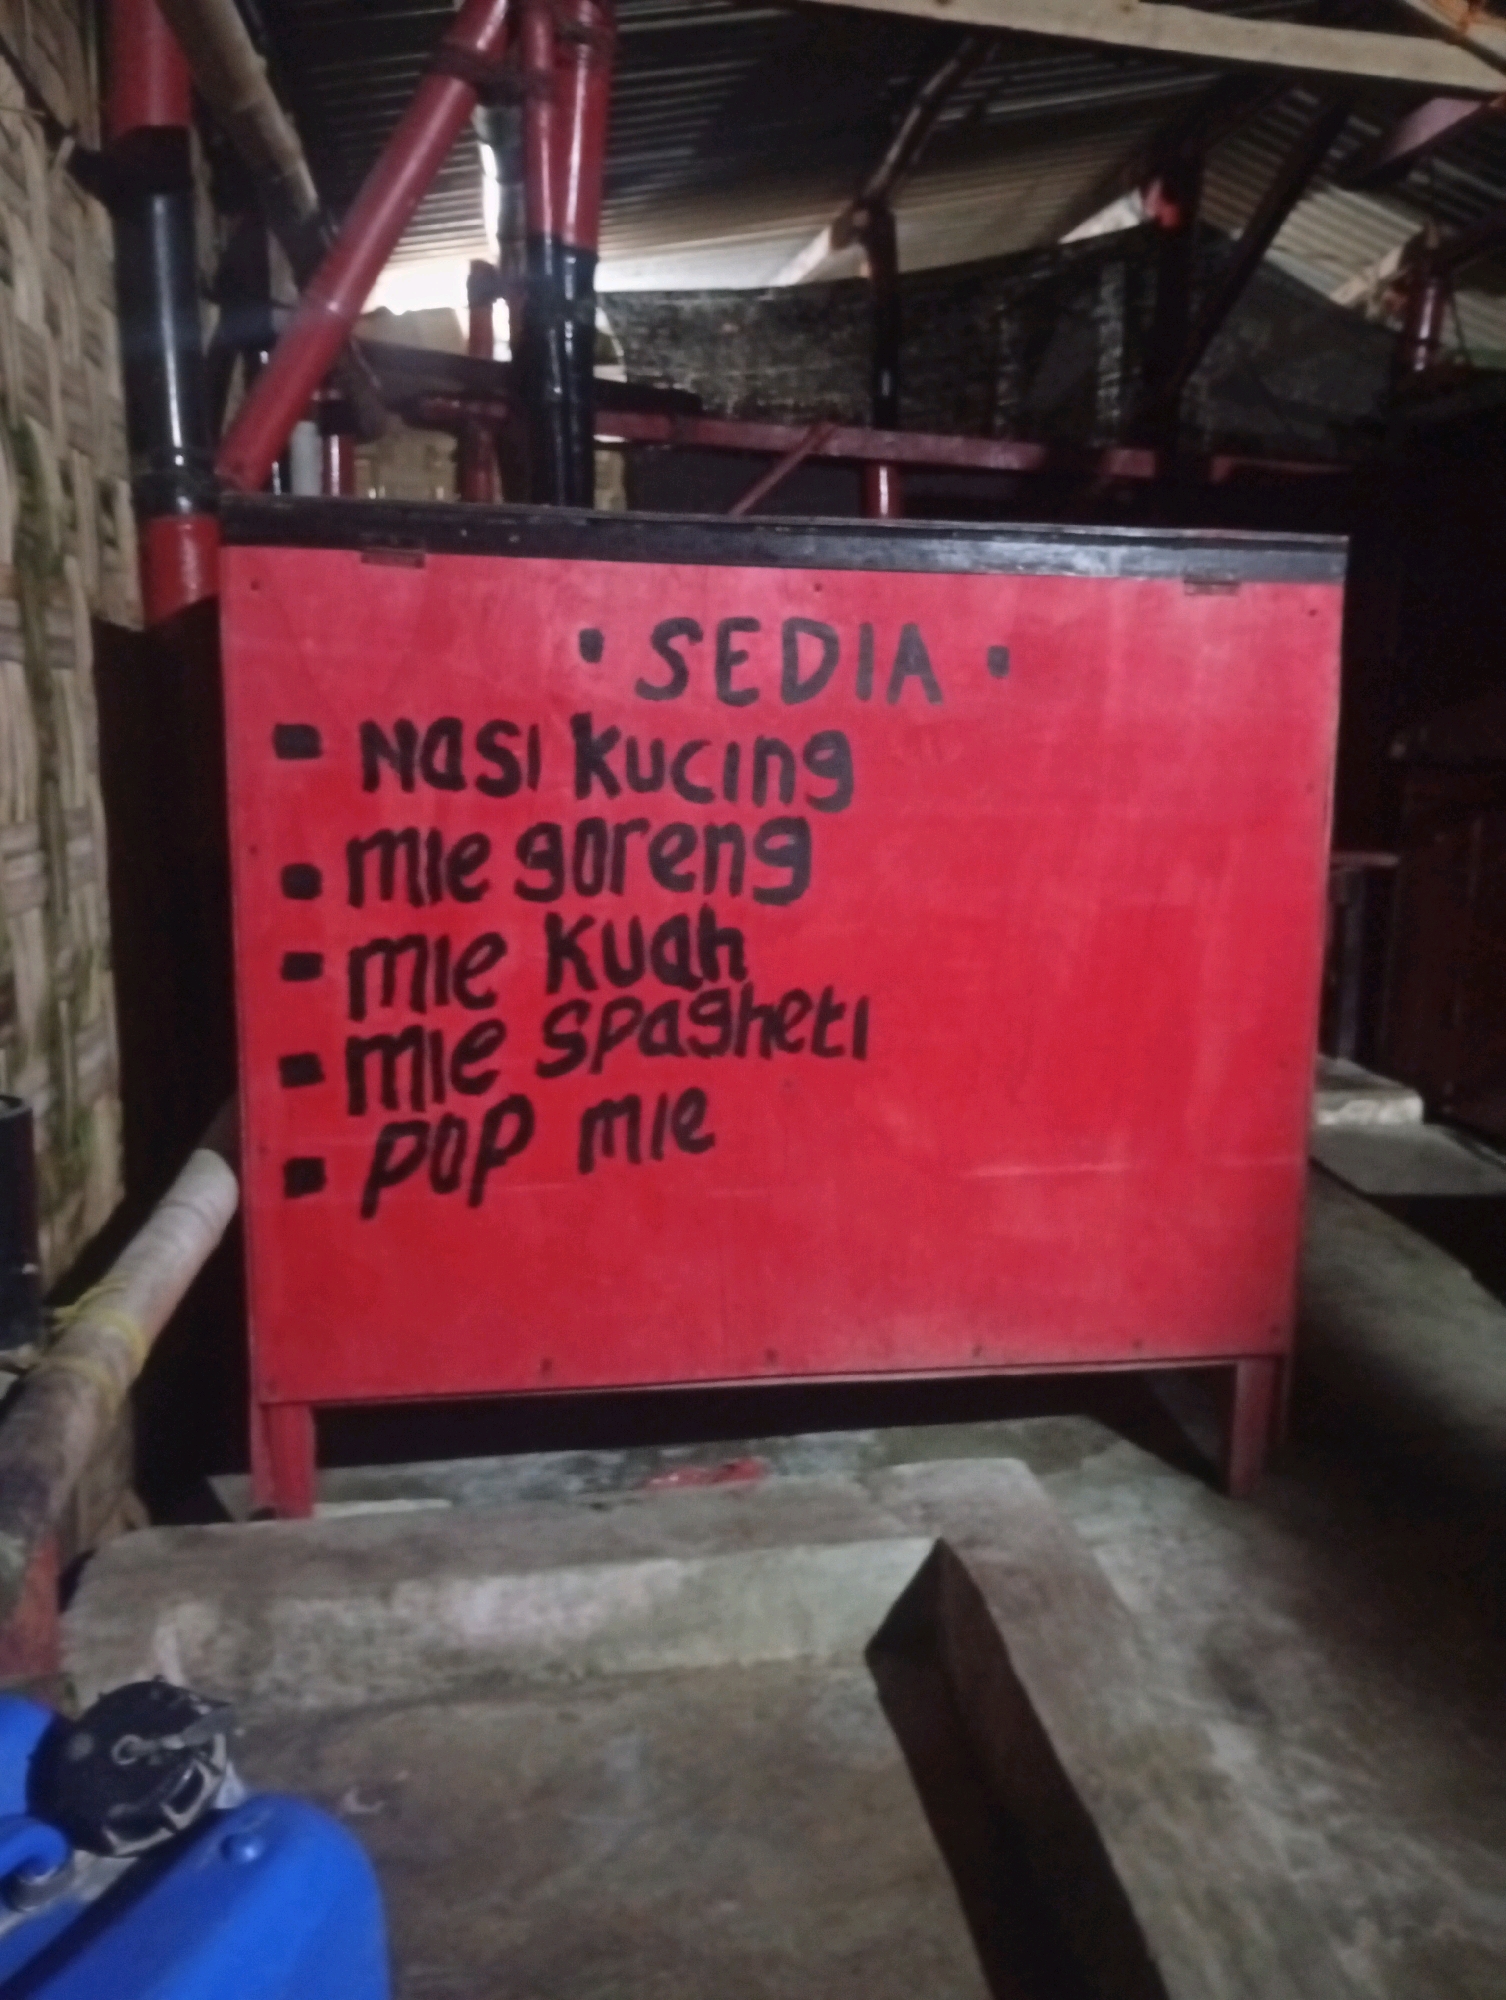 • SEDIA •
▪ Nasi kucing
▪ mie goreng
▪ mie kuah
▪ mie spagheti
▪ pop mie